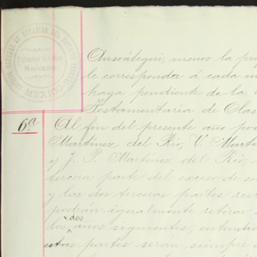 MEXICO
Anseátegui, menos la pa
le corresponda á cada u
haya pendiente de la
Testamentaria de Clas
6ª
Al fin del presente año po
Martinez del Rio, V. Marti
y J. P. Martinez del Rio,
tercera parte del exceso de
y las dos terceras partes res
podrán igualmente retirar
dos
los años siguientes, entendie
partes serán, siempre